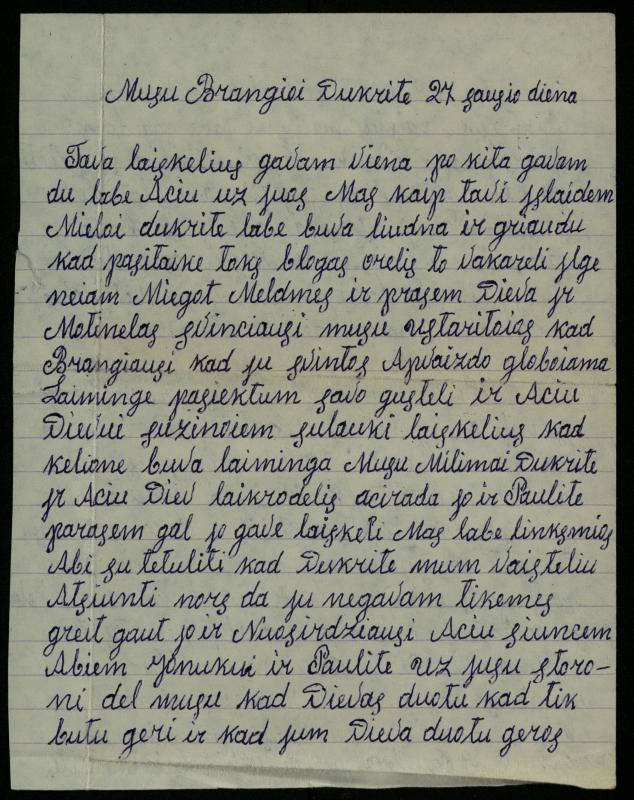 Musu Brangioi Dukrite 27 sausio diena
Tava laiskelius gavam viena po kita gavam
du labe Aciu uz juos Mas kaip tavi islaidem
Mieloi dukrite labe buva liudna ir griaudu
kad pasitaike toks blogas orelis to vakareli ilge
neiam Miegot Meldmes ir prasem Dieva ir
Motinelas svinciausi musu ustaritoias kad
Brangiausi kad ju svintos Apvaizdo globoiama
Laiminge pasiektum savo gusteli ir Aciu
Dievui suzinoiem sulauki laiskelius kad
kelione buva laiminga Musu Milimai Dukrite
ir Aciu Diev laikrodelis acirada jo ir Paulite
parasem gal jo gave laisketi Mas labe linksmios
Abi su tetuliti kad Dukrite mum vaisteliu
Atsiunti nors da ju negavam tikemes
greit gaut jo ir Nuosirdziausi Aciu siuncem
Abiem Jonukui ir Paulite uz jusu storo-
ni del musu kad Dievas duotu kad tik
butu geri ir kad jum Dieva duotu geros